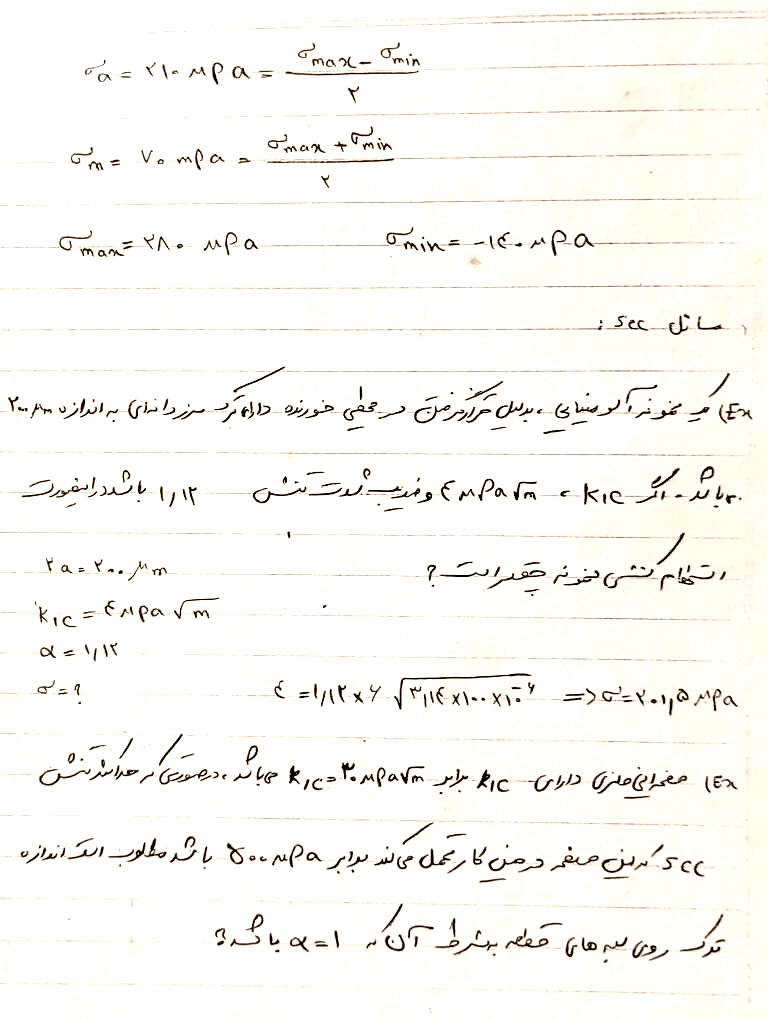 σa = ۲۱۰ MPa = (σmax − σmin) / ۲
σm = ۷۰ mpa = (σmax + σmin) / ۲
σmax = ۲۸۰ MPa σmin = −۱۴۰ MPa
مسائل scc :
Ex) یک نمونه آلومینیایی، بدلیل قرارگرفتن در محیطی خورنده دارای ترک مرزدانه‌ای به اندازه ۲۰۰ μm
می‌باشد. اگر K1C ، ۴ MPa√m و ضریب شدت تنش ۱٫۱۲ باشد در اینصورت
استحکام کششی نمونه چقدر است ؟
۲a = ۲۰۰ μm
K1C = ۴ MPa√m
α = ۱٫۱۲
σ = ?
۴ = ۱٫۱۲ × ۶ √(۳٫۱۴ × ۱۰۰ × ۱۰⁻⁶) => σ = ۲۰۱٫۵ MPa
Ex) صفحه‌ای فلزی دارای K1C برابر K1C = ۳۰ MPa√m می‌باشد، درصورتی که حداکثر تنش
scc که این صفحه در حین کار تحمل می‌کند برابر ۵۰۰ MPa باشد مطلوب است اندازه
ترک روی لبه های قطعه بشرط آن که α = ۱ باشد؟